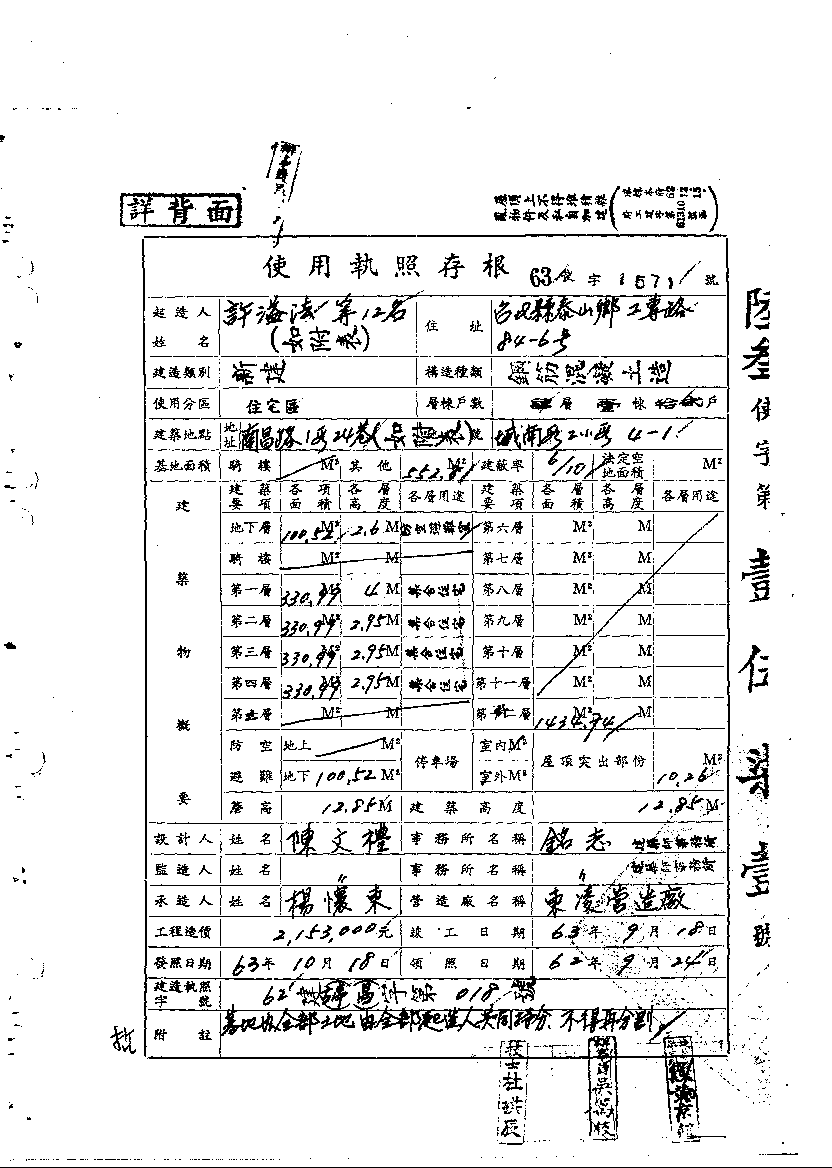 詳背面
使用執照存根 63 使 字 1571 號
起造人姓名 許海法等12名 (如附表) 住址 台北縣泰山鄉工專路84-6号
建造類別 新建 構造種類 鋼筋混凝土造
使用分區 住宅區 層棟戶數 層 棟 戶
建築地點 地址 南昌路1段24巷 號 城南段2小段 4-1
基地面積 騎樓 M² 其他 552.81 M² 建蔽率 6/10 法定空地面積 M²
建築物概要
建築要項 各項面積 各層高度 各層用途 建築要項 各層面積 各層高度 各層用途
地下層 100.52 M² 2.6 M 第六層 M² M
騎樓 M² M 第七層 M² M
第一層 330.99 4 M 集合住宅 第八層 M² M
第二層 330.99 2.95 M 集合住宅 第九層 M² M
第三層 330.99 2.95 M 集合住宅 第十層 M² M
第四層 330.99 2.95 M 集合住宅 第十一層 M² M
第五層 M² M 第十二層 1434.74 M
防空避難 地上 M² 停車場 室內M² 屋頂突出部份 M²
地下 100.52 M² 室外M² 10.26
簷高 12.85 M 建築高度 12.85 M
設計人 姓名 陳文禮 事務所名稱 銘志 建築師事務所
監造人 姓名 〃 事務所名稱 〃 建築師事務所
承造人 姓名 楊懷東 營造廠名稱 東凌營造廠
工程造價 2,153,000元 竣工日期 63年9月18日
發照日期 63年10月18日 領照日期 62年9月24日
建造執照字號 62 建 字第 018 號
附註 基地內全部土地由全部起造人共同持分、不得再分割
陸叁使字第壹伍柒壹號
技士杜